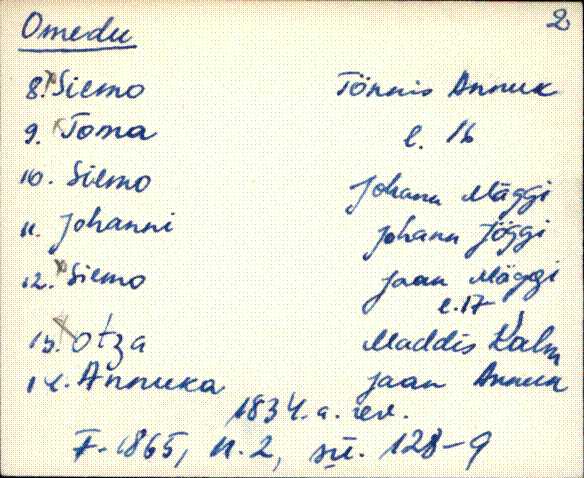 Omedu 2
8. Siemo Tönnis Annuk
9. Toma l. 16
10. Siemo Johann Mäggi
11. Johanni Johann Jöggi
12. Siemo Jaan Mäggi
l. 17
13. Otza Maddis Kalm
14. Annuka Jaan Annuk
1834. a. rev.
F. 1865, n. 2, sü. 128-9